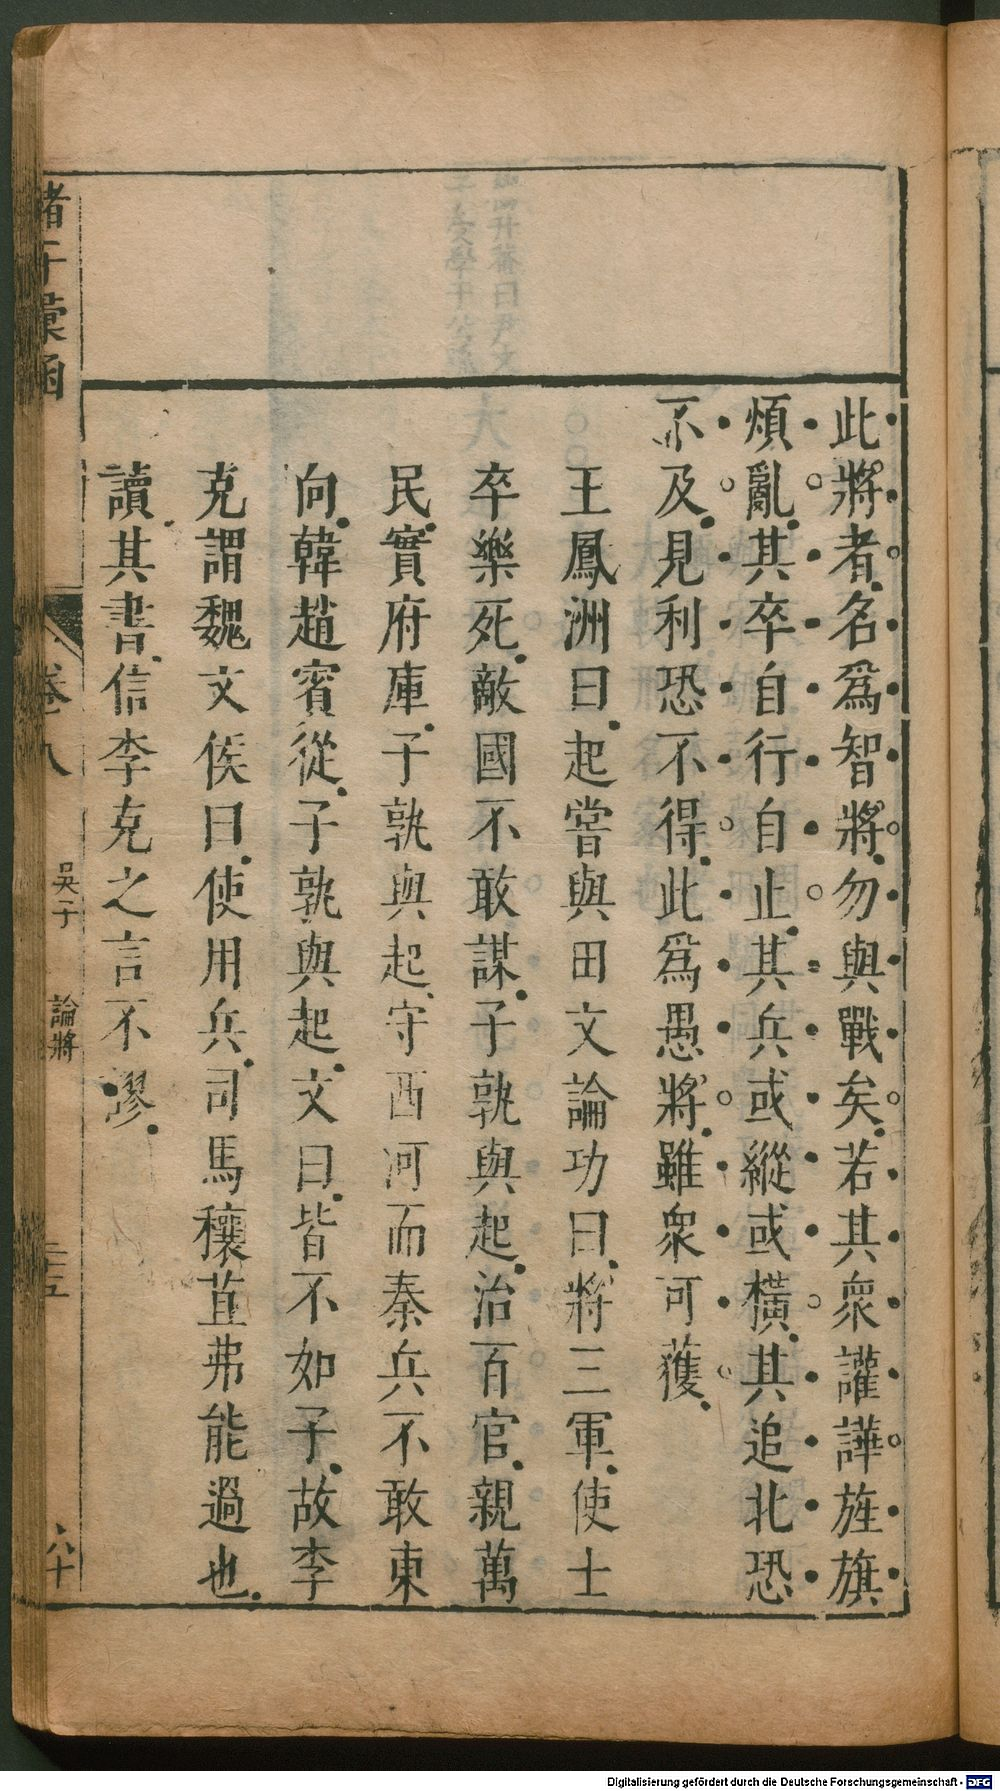 此將者名爲智將勿與戰矣若其衆讙譁旌旗
煩亂其卒自行自止其兵或縱或橫其追北恐
不及見利恐不得此爲愚將雖衆可獲
王鳳洲曰起嘗與田文論功曰將三軍使士
卒樂死敵國不敢謀子孰與起治百官親萬
民實府庫子孰與起守西河而秦兵不敢東
向韓趙賓從子孰與起文曰皆不如子故李
克謂魏文侯曰使用兵司馬穰苴弗能過也
讀其書信李克之言不謬
諸子彙函
卷八
吳子
論將
二十五
六十
Digitalisierung gefördert durch die Deutsche Forschungsgemeinschaft - DFG